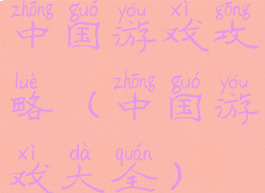 zhōng guó yóu xì gōng
中国游戏攻
lüè zhōng guó yóu
略（中国游
xì dà quán
戏大全）